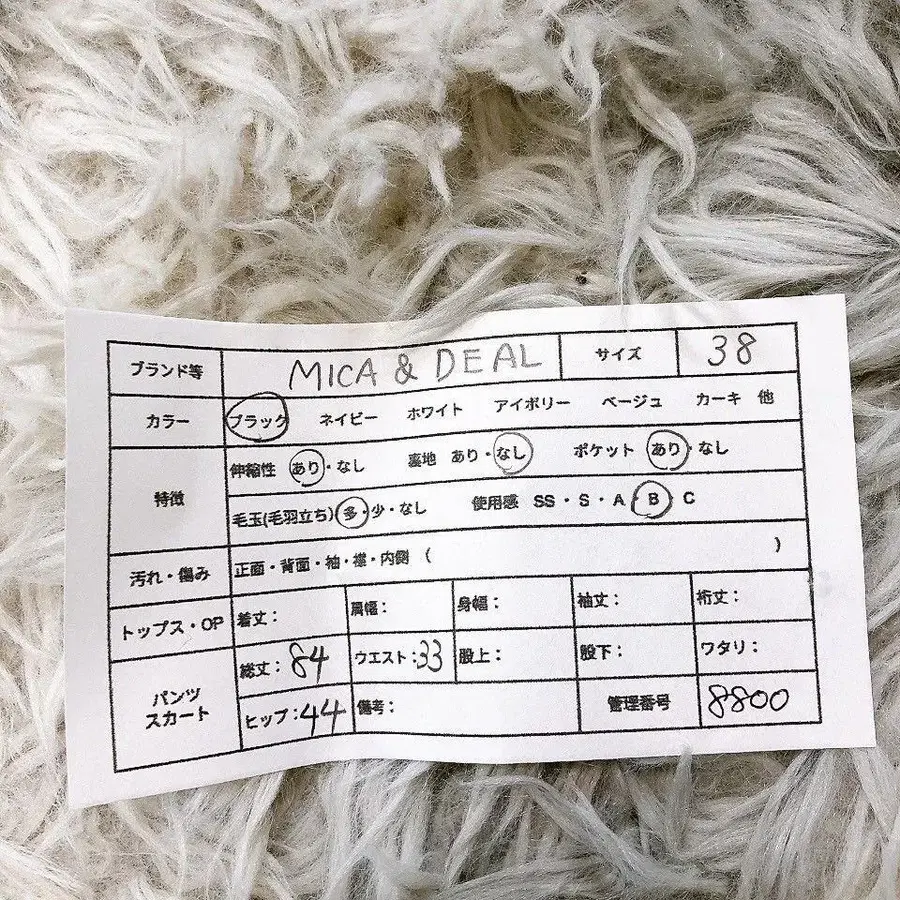 ブランド等 MICA & DEAL サイズ 38
カラー ブラック ネイビー ホワイト アイボリー ベージュ カーキ 他
特徴 伸縮性 あり・なし 裏地 あり・なし ポケット あり・なし
毛玉(毛羽立ち) 多・少・なし 使用感 SS・S・A・B・C
汚れ・傷み 正面・背面・袖・襟・内側 ( )
トップス・OP 着丈: 肩幅: 身幅: 袖丈: 裄丈:
パンツ スカート 総丈:84 ウエスト:33 股上: 股下: ワタリ:
ヒップ:44 備考: 管理番号 8800